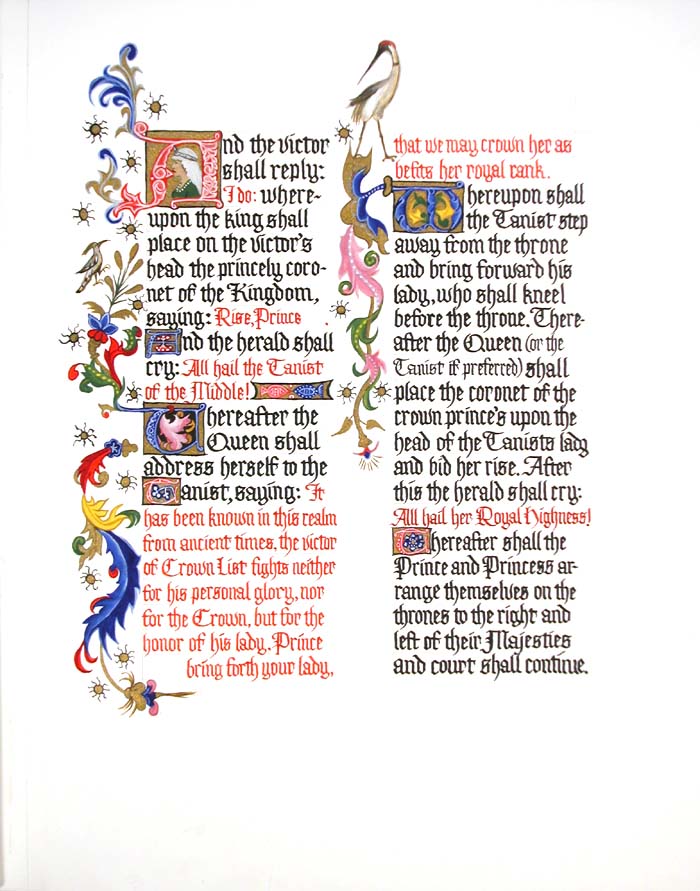 And the victor
shall reply:
I do: where-
upon the king shall
place on the victor's
head the princely coro-
net of the Kingdom,
saying: Rise, Prince
And the herald shall
cry: All hail the Tanist
of the Middle!
Thereafter the
Queen shall
address herself to the
Tanist, saying: It
has been known in this realm
from ancient times, the victor
of Crown List fights neither
for his personal glory, nor
for the Crown, but for the
honor of his lady. Prince
bring forth your lady,
that we may crown her as
befits her royal rank.
Thereupon shall
the Tanist step
away from the throne
and bring forward his
lady, who shall kneel
before the throne. There-
after the Queen (or the
Tanist if preferred) shall
place the coronet of the
crown prince's upon the
head of the Tanists lady
and bid her rise. After
this the herald shall cry:
All hail her Royal Highness!
Thereafter shall the
Prince and Princess ar-
range themselves on the
thrones to the right and
left of their Majesties
and court shall continue.